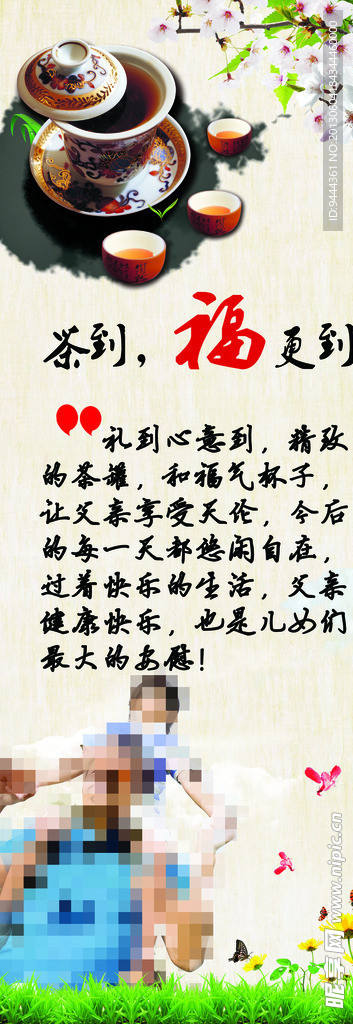 茶到，福更到
礼到心意到，精致
的茶罐，和福气杯子，
让父亲享受天伦，今后
的每一天都悠闲自在，
过着快乐的生活，父亲
健康快乐，也是儿女们
最大的安慰！
昵享网 www.nipic.cn